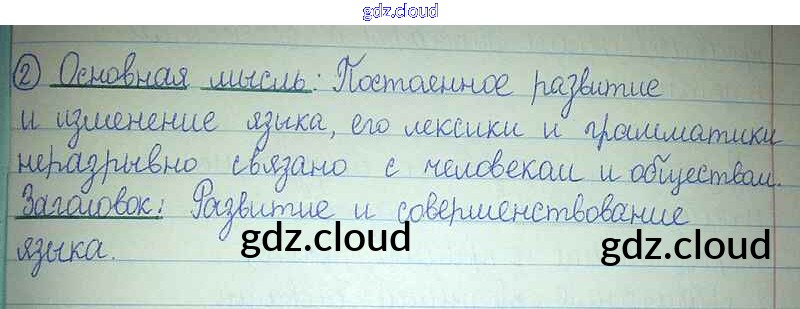 gdz.cloud
② Основная мысль: Постоенное развитие
и изменение языка, его лексики и грамматики
неразрывно связано с человеком и обществом.
Заголовок: Развитие и совершенствование
языка.
gdz.cloud
gdz.cloud